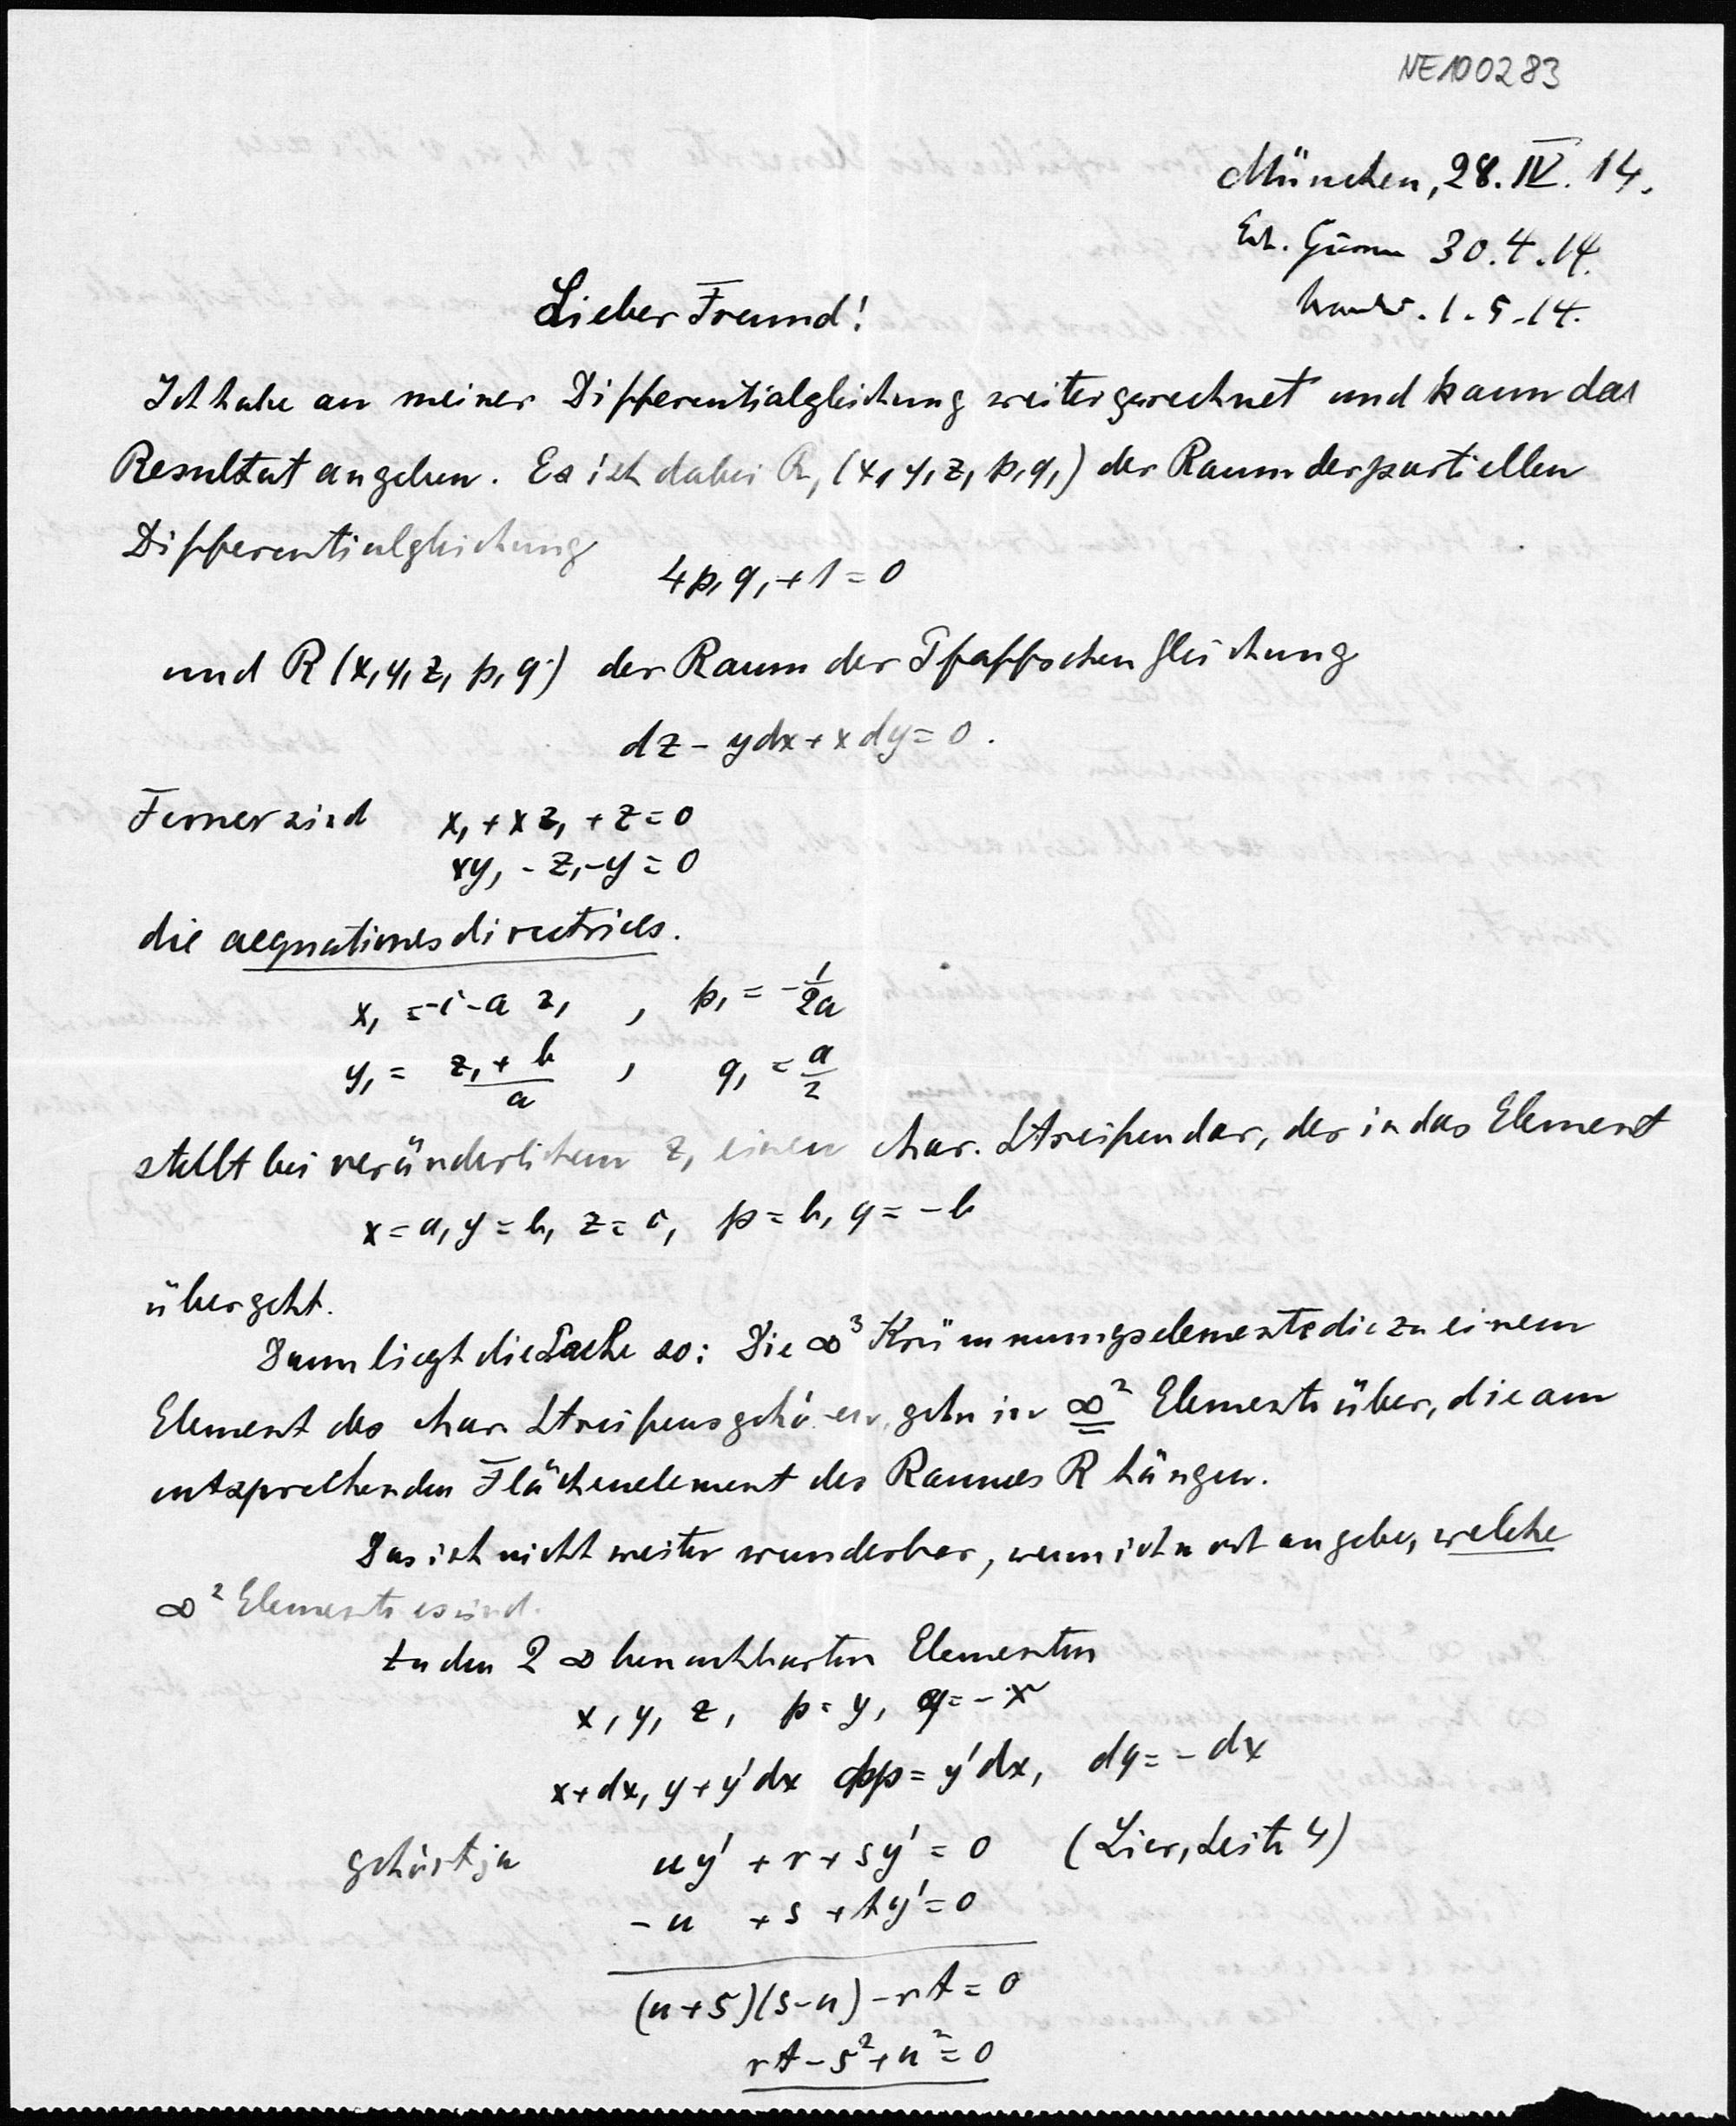 NE100283
München, 28. IV. 14.
30.4.14.
1.5.14.
Lieber Freund!
Ich habe an meiner Differentialgleichung weitergerechnet und kann das
Resultat angeben. Es ist dabei R₁ (x₁ y₁ z₁ p₁ q₁) der Raum der partiellen
Differentialgleichung
4p₁q₁ + 1 = 0
und R (x, y, z, p, q) der Raum der Pfaffschen Gleichung
dz - ydx + x dy = 0.
Ferner sind x₁ + x z₁ + z = 0
xy₁ - z₁ - y = 0
die aequationes directrices.
x₁ = -c - a z₁ , p₁ = -1/2a
y₁ = (z₁ + b)/a , q₁ = a/2
stellt bei veränderlichem z₁ einen char. Streifen dar, der in das Element
x = a, y = b, z = c, p = b, q = -b
übergeht.
Dann liegt die Sache so: Die ∞³ Krümmungselemente die zu einem
Element des char. Streifens gehören, gehn in ∞² Elemente über, die am
entsprechenden Flächenelement des Raumes R hängen.
Das ist nicht weiter wunderbar, wenn ich erst angebe, welche
∞² Elemente es sind.
Zu den 2 ∞ benachbarten Elementen
x, y, z, p = y, q = -x
x + dx, y + y'dx dp = y'dx, dq = -dx
gehört ja uy' + r + sy' = 0 (Lier, Seite 4)
-u + s + ty' = 0
(u+s)(s-u) - rt = 0
rt - s² + u² = 0